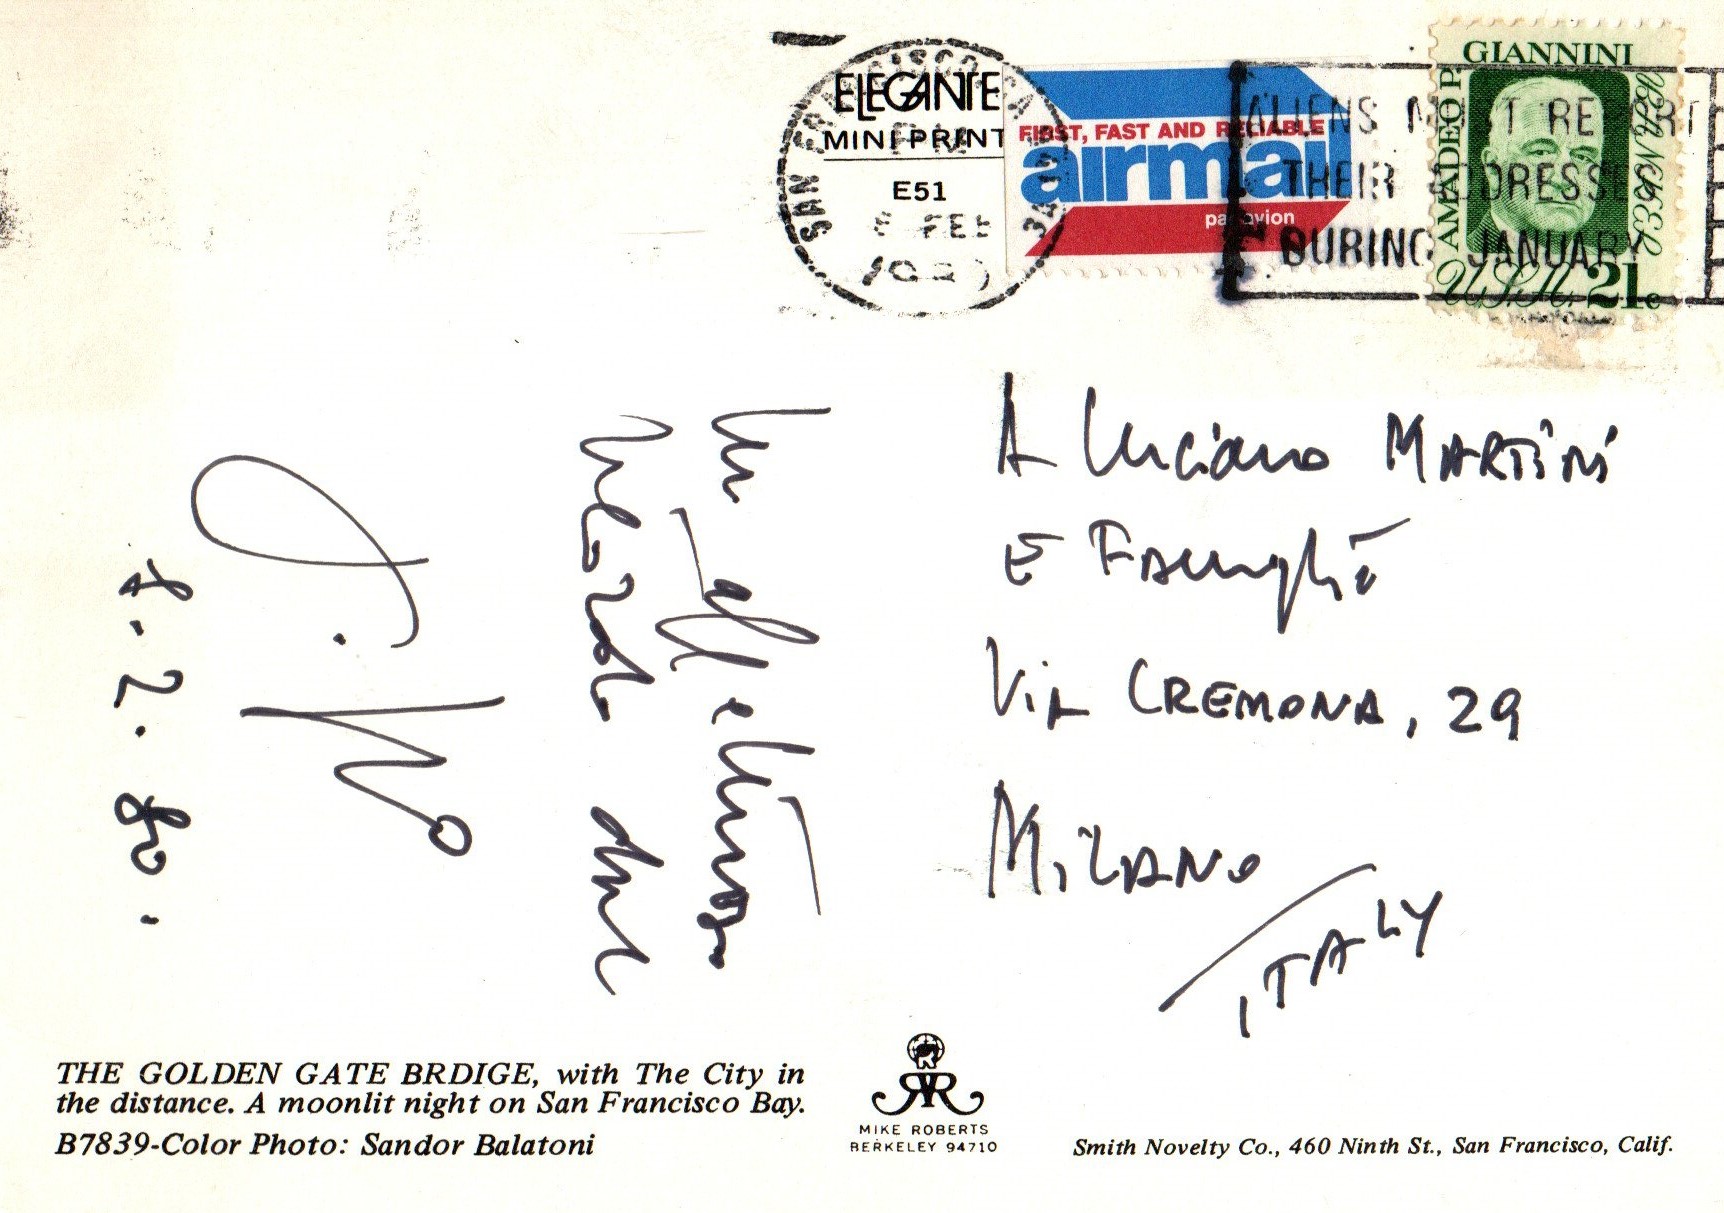 ELEGANTE
MINI-PRINT
E51
SAN FRANCISCO CA
PM
FEB
FIRST, FAST AND RELIABLE
airmail
par avion
ALIENS MUST REPORT
THEIR ADDRESSES
DURING JANUARY
GIANNINI
AMADEO P.
U.S.A. 21c
A Luciano MARTINI
E FAMIGLIA
VIA CREMONA, 29
MILANO
ITALY
Un affettuoso
ricordo
8.2.80.
THE GOLDEN GATE BRDIGE, with The City in
the distance. A moonlit night on San Francisco Bay.
B7839-Color Photo: Sandor Balatoni
MIKE ROBERTS
BERKELEY 94710
Smith Novelty Co., 460 Ninth St., San Francisco, Calif.